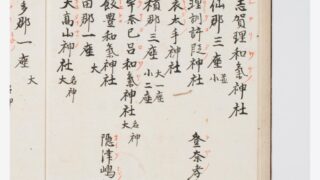 志賀理和氣神社
仙郡三座 並小
理訓許段神社 登奈孝
衣太手神社
積郡三座 大一座 小二座
奈己呂和氣神社 名神大
飯豊和氣神社 隠津嶋
田郡一座 大
大高山神社 名神大
多郡一座 大